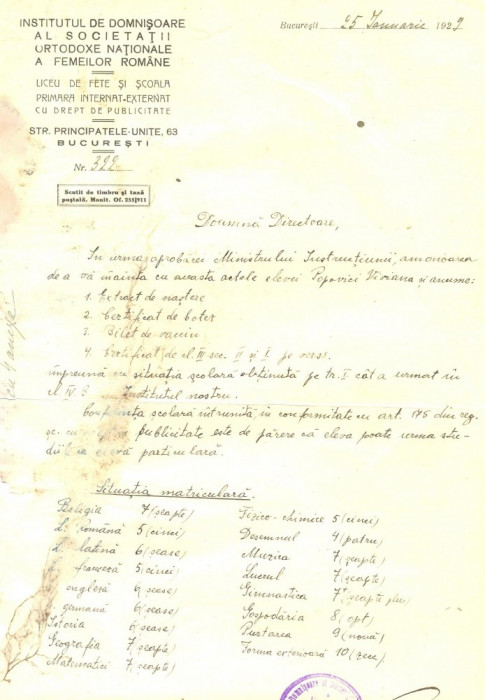 INSTITUTUL DE DOMNIȘOARE
AL SOCIETAȚII
ORTODOXE NAȚIONALE
A FEMEILOR ROMÂNE
LICEU DE FETE ȘI ȘCOALA
PRIMARA INTERNAT-EXTERNAT
CU DREPT DE PUBLICITATE
STR. PRINCIPATELE-UNITE, 63
BUCUREȘTI
Nr. 322
Scutit de timbru și taxă
poștală. Monit. Of. 255|911
București 25 Ianuarie 1929
Doamnă Directoare,
In urma aprobărei Ministrului Instrucțiunii, am onoarea
de a vă înainta cu aceasta actele elevei Popovici Viviana și anume:
1. Extract de naștere
2. Certificat de botez
3. Bilet de vaccin
4. Certificat de cl. III sec. II și I pe verso.
împreună cu situația școlară obținută pe tr. I cât a urmat în
cl. IV B Institutul nostru.
Conferința școlară întrunită în conformitate cu art. 175 din reg.
șc. cu publicitate este de părere că eleva poate urma stu-
diile ca elevă particulară.
Situația matriculară.
Religia 7 (șapte)
L. română 5 (cinci)
L. latină 6 (șase)
franceză 5 (cinci)
engleză 6 (șase)
germană 6 (șase)
Istoria 6 (șase)
Geografia 7 (șapte)
Matematici 7 (șapte)
Fizico-chimice 5 (cinci)
Desemnul 4 (patru)
Muzica 7 (șapte)
Lucrul 7 (șapte)
Gimnastica 7+ (șapte plus)
Gospodăria 8 (opt)
Purtarea 9 (nouă)
Forma exterioară 10 (zece)